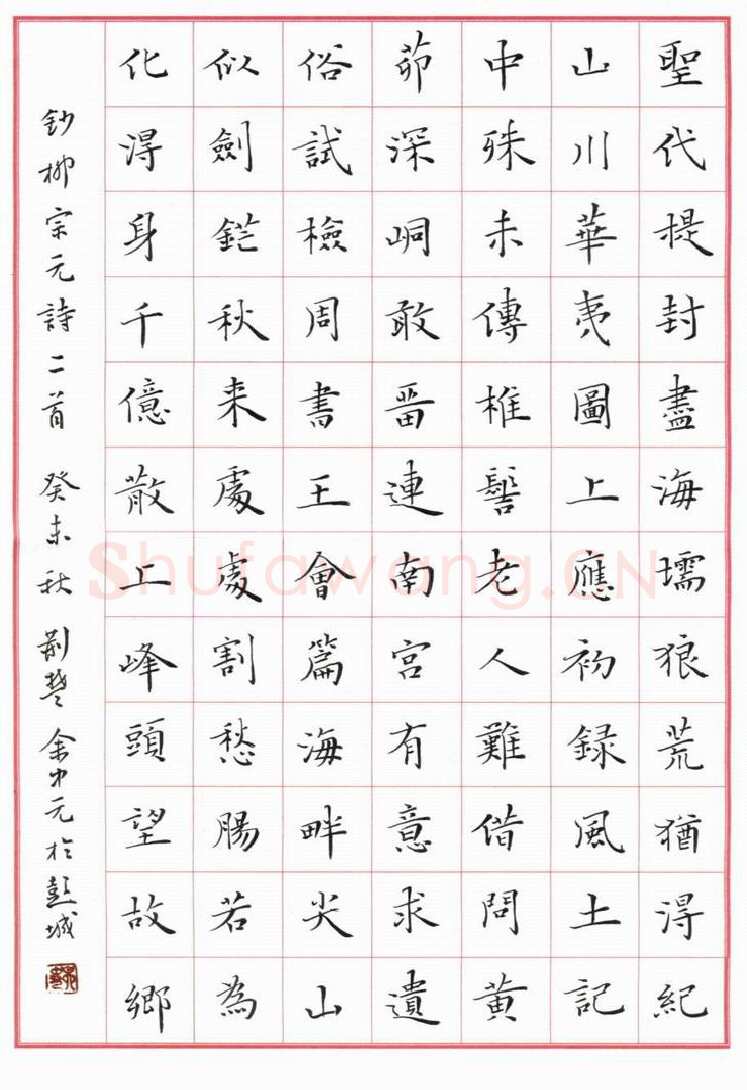 聖代提封盡海壖狼荒猶得紀
山川華夷圖上應初録風土記
中殊未傳椎髻老人難借問黄
茆深峒敢畱連南宮有意求遺
俗試檢周書王會篇海畔尖山
似劍鋩秋来處處割愁腸若為
化得身千億散上峰頭望故鄉
鈔柳宗元詩二首 癸未秋 荊楚 余中元於彭城
Shufawang.CN